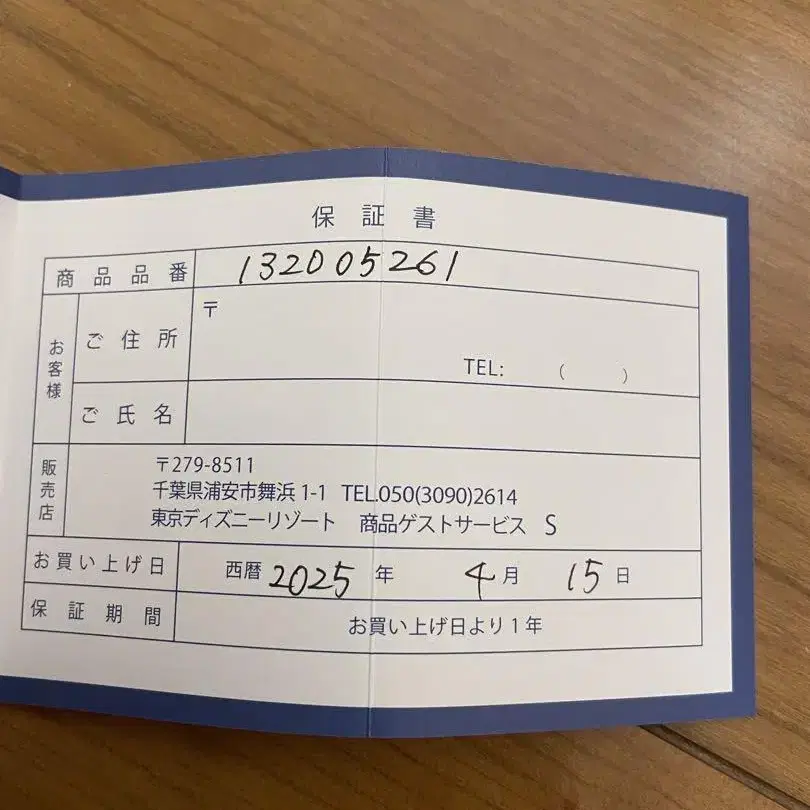 保証書
商品品番 132005261
お客様
ご住所 〒
TEL: ( )
ご氏名
販売店
〒279-8511
千葉県浦安市舞浜1-1 TEL.050(3090)2614
東京ディズニーリゾート 商品ゲストサービス S
お買い上げ日 西暦 2025 年 4 月 15 日
保証期間 お買い上げ日より1年